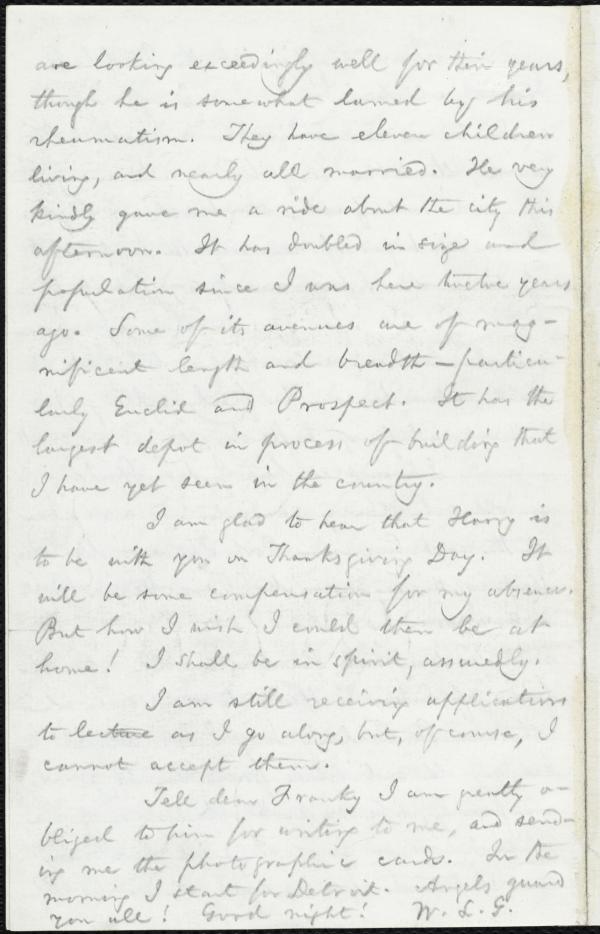 are looking exceedingly well for their years,
though he is somewhat lamed by his
rheumatism. They have eleven children
living, and nearly all married. He very
kindly gave me a ride about the city this
afternoon. It has doubled in size and
population since I was here twelve years
ago. Some of its avenues are of mag-
nificent length and breadth — particu-
larly Euclid and Prospect. It has the
largest depot in process of building that
I have yet seen in the country.
I am glad to hear that Harry is
to be with you on Thanksgiving Day. It
will be some compensation for my absence.
But how I wish I could then be at
home! I shall be in spirit, assuredly.
I am still receiving applications
to lecture as I go along, but, of course, I
cannot accept them.
Tell dear Franky I am greatly o-
bliged to him for writing to me, and send-
ing me the photographic cards. In the
morning I start for Detroit. Angels guard
you all! Good night! W. L. G.